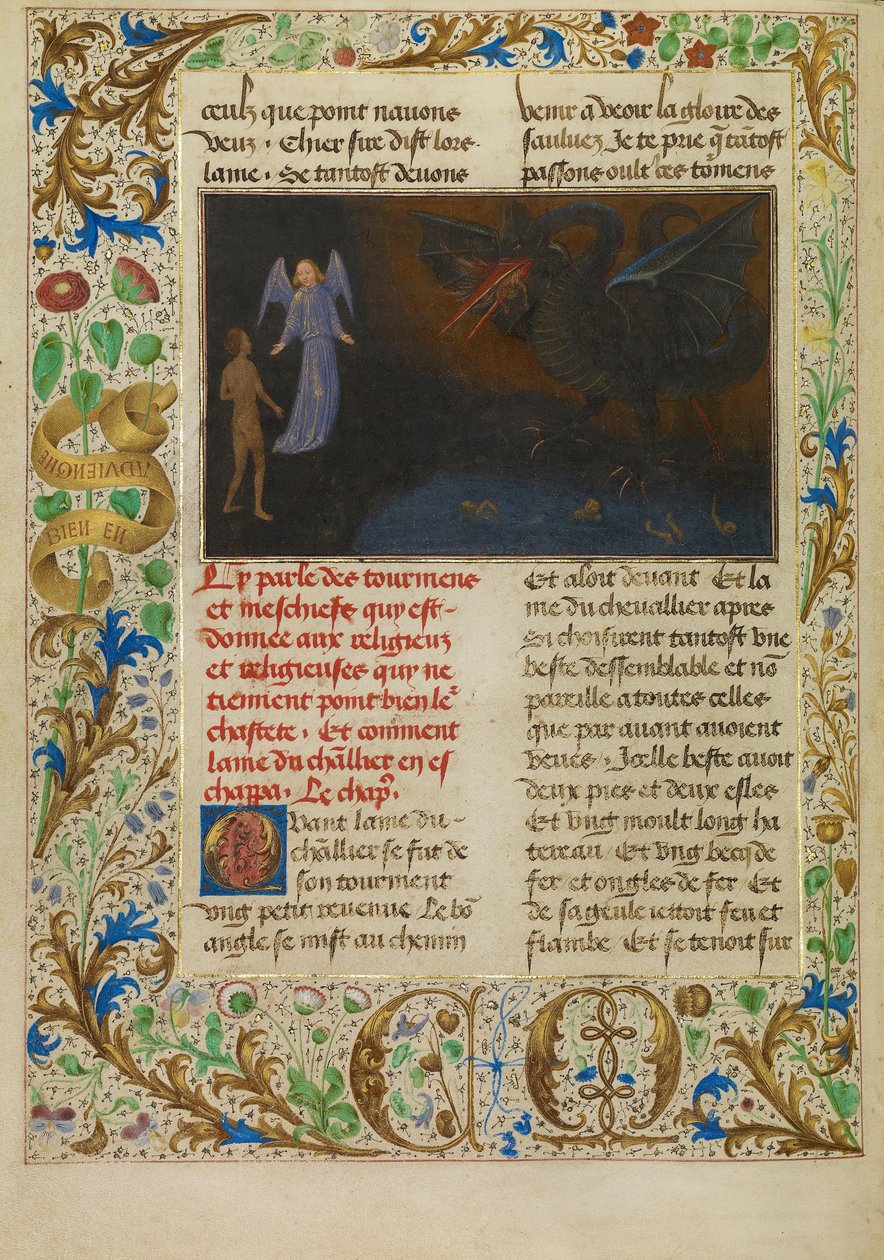 ceulz que point nauons
veuz . Chier sire dist lors.
lame . Se tantost deuons
venir a veoir la gloire des
sauluez Je te prie q̃ tātost
passons oult̃ ces tõmens
Cy parle des tourmens
et meschiefs quy est-
donnee aux religieuz
et religieuses quy ne
tiennent point bien le²
chastete . Et comment
lame du chl̃lier en es
chappa . Le chap̃.
Quant lame du-
chl̃lier se fut de
son tourment
vng petit reuenue Le bō
angle se mist au chemin
Et aloit deuant Et la
me du cheuallier apres
Si choisirent tantost vne
beste dessemblable et nō
pareille a toutes celles
que par auant auoient
veues . Icelle beste auoit
deux pies et deux esles
Et vng moult long ha
tereau Et vng becq de
fer et ongles de fer Et
de sa geule iettoit feu et
flambe Et se tenoit sur
BIEN EN
ADVIENGNE
C M